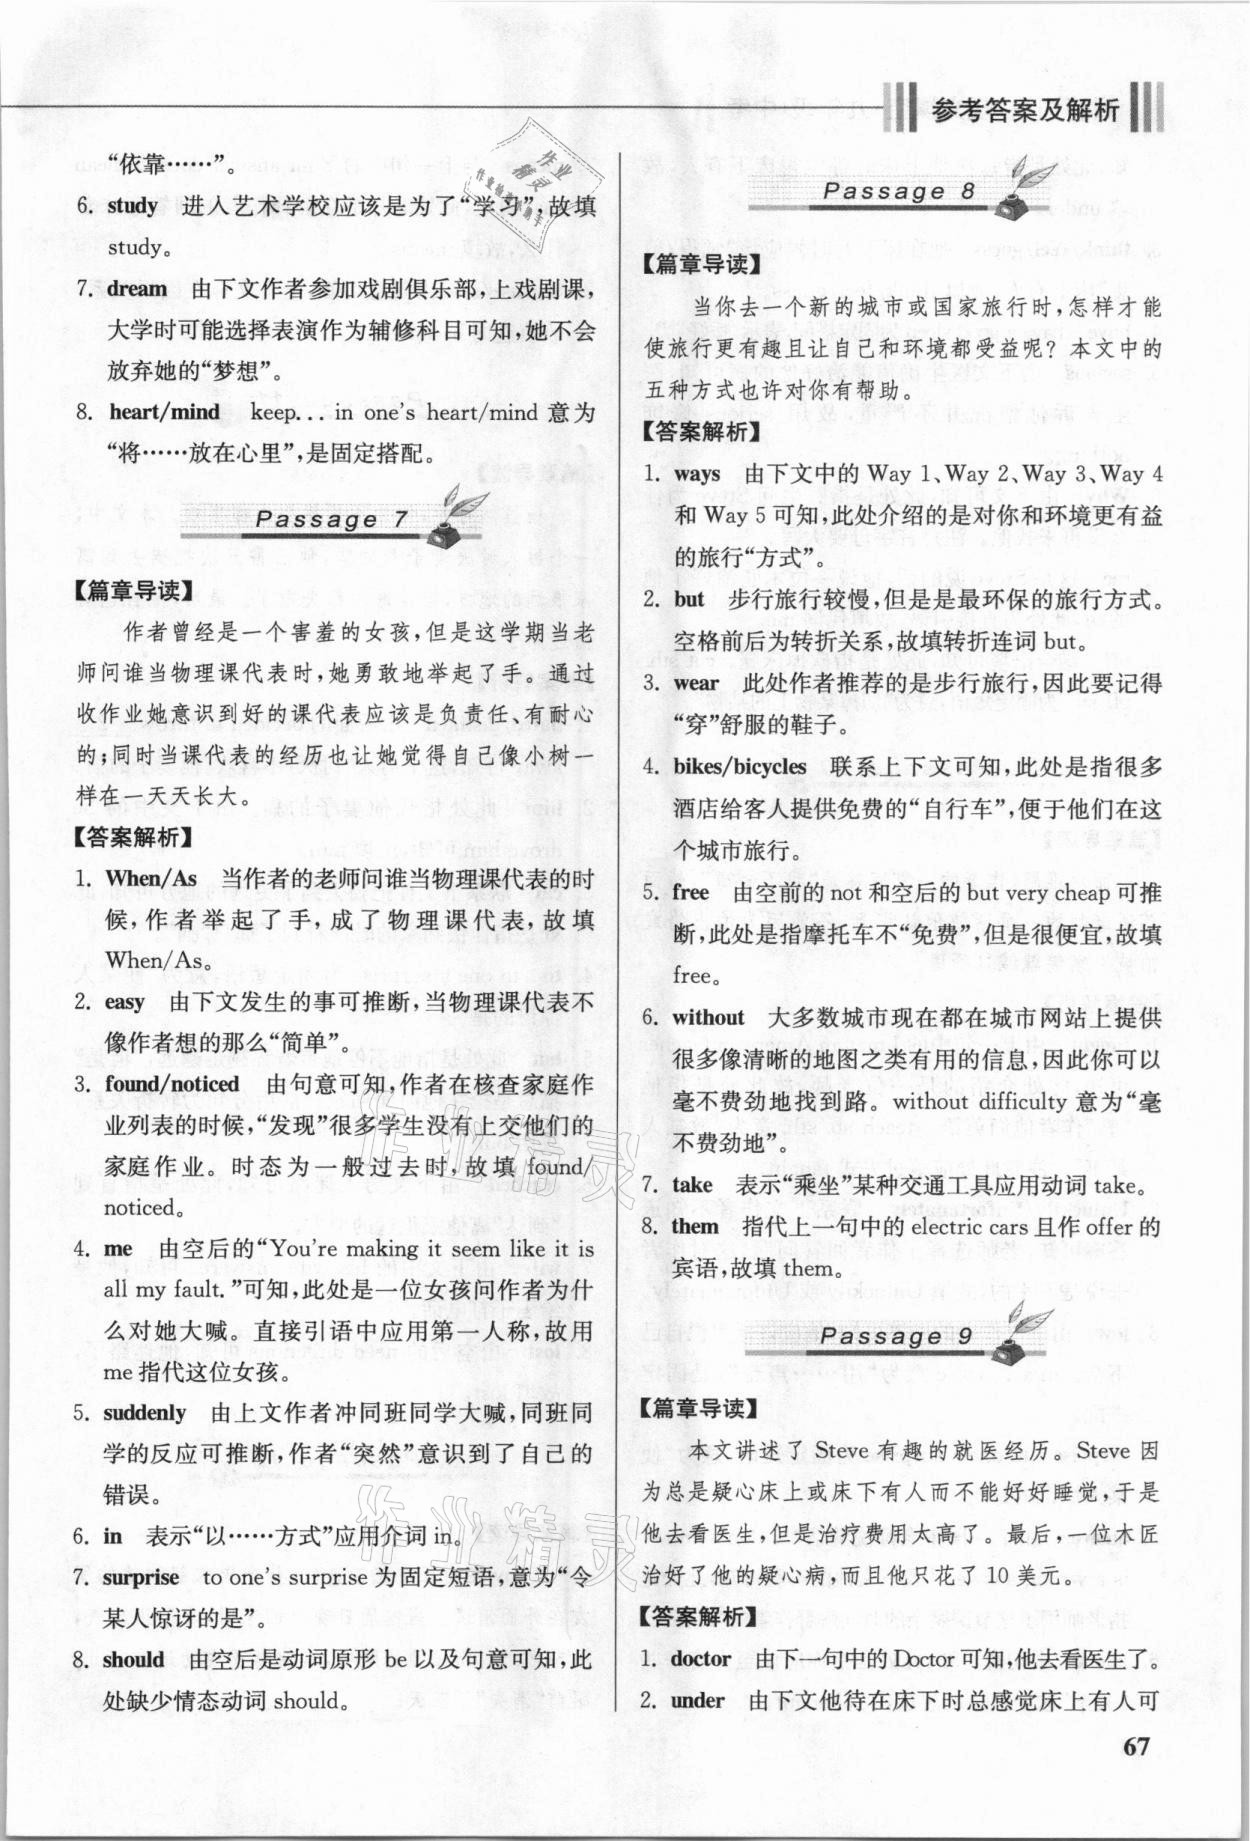 参考答案及解析
“依靠……”。
6. study 进入艺术学校应该是为了“学习”,故填
study。
7. dream 由下文作者参加戏剧俱乐部,上戏剧课,
大学时可能选择表演作为辅修科目可知,她不会
放弃她的“梦想”。
8. heart/mind keep... in one's heart/mind 意为
“将……放在心里”,是固定搭配。
Passage 7
【篇章导读】
作者曾经是一个害羞的女孩,但是这学期当老
师问谁当物理课代表时,她勇敢地举起了手。通过
收作业她意识到好的课代表应该是负责任、有耐心
的;同时当课代表的经历也让她觉得自己像小树一
样在一天天长大。
【答案解析】
1. When/As 当作者的老师问谁当物理课代表的时
候,作者举起了手,成了物理课代表,故填
When/As。
2. easy 由下文发生的事可推断,当物理课代表不
像作者想的那么“简单”。
3. found/noticed 由句意可知,作者在核查家庭作
业列表的时候,“发现”很多学生没有上交他们的
家庭作业。时态为一般过去时,故填 found/
noticed。
4. me 由空后的“You're making it seem like it is
all my fault.”可知,此处是一位女孩问作者为什
么对她大喊。直接引语中应用第一人称,故用
me 指代这位女孩。
5. suddenly 由上文作者冲同班同学大喊,同班同
学的反应可推断,作者“突然”意识到了自己的
错误。
6. in 表示“以……方式”应用介词 in。
7. surprise to one's surprise 为固定短语,意为“令
某人惊讶的是”。
8. should 由空后是动词原形 be 以及句意可知,此
处缺少情态动词 should。
Passage 8
【篇章导读】
当你去一个新的城市或国家旅行时,怎样才能
使旅行更有趣且让自己和环境都受益呢?本文中的
五种方式也许对你有帮助。
【答案解析】
1. ways 由下文中的 Way 1、Way 2、Way 3、Way 4
和 Way 5 可知,此处介绍的是对你和环境更有益
的旅行“方式”。
2. but 步行旅行较慢,但是是最环保的旅行方式。
空格前后为转折关系,故填转折连词 but。
3. wear 此处作者推荐的是步行旅行,因此要记得
“穿”舒服的鞋子。
4. bikes/bicycles 联系上下文可知,此处是指很多
酒店给客人提供免费的“自行车”,便于他们在这
个城市旅行。
5. free 由空前的 not 和空后的 but very cheap 可推
断,此处是指摩托车不“免费”,但是很便宜,故填
free。
6. without 大多数城市现在都在城市网站上提供
很多像清晰的地图之类有用的信息,因此你可以
毫不费劲地找到路。without difficulty 意为“毫
不费劲地”。
7. take 表示“乘坐”某种交通工具应用动词 take。
8. them 指代上一句中的 electric cars 且作 offer 的
宾语,故填 them。
Passage 9
【篇章导读】
本文讲述了 Steve 有趣的就医经历。Steve 因
为总是疑心床上或床下有人而不能好好睡觉,于是
他去看医生,但是治疗费用太高了。最后,一位木匠
治好了他的疑心病,而且他只花了 10 美元。
【答案解析】
1. doctor 由下一句中的 Doctor 可知,他去看医生了。
2. under 由下文他待在床下时总感觉床上有人可
67
作业精灵
作业精灵
作业
精灵